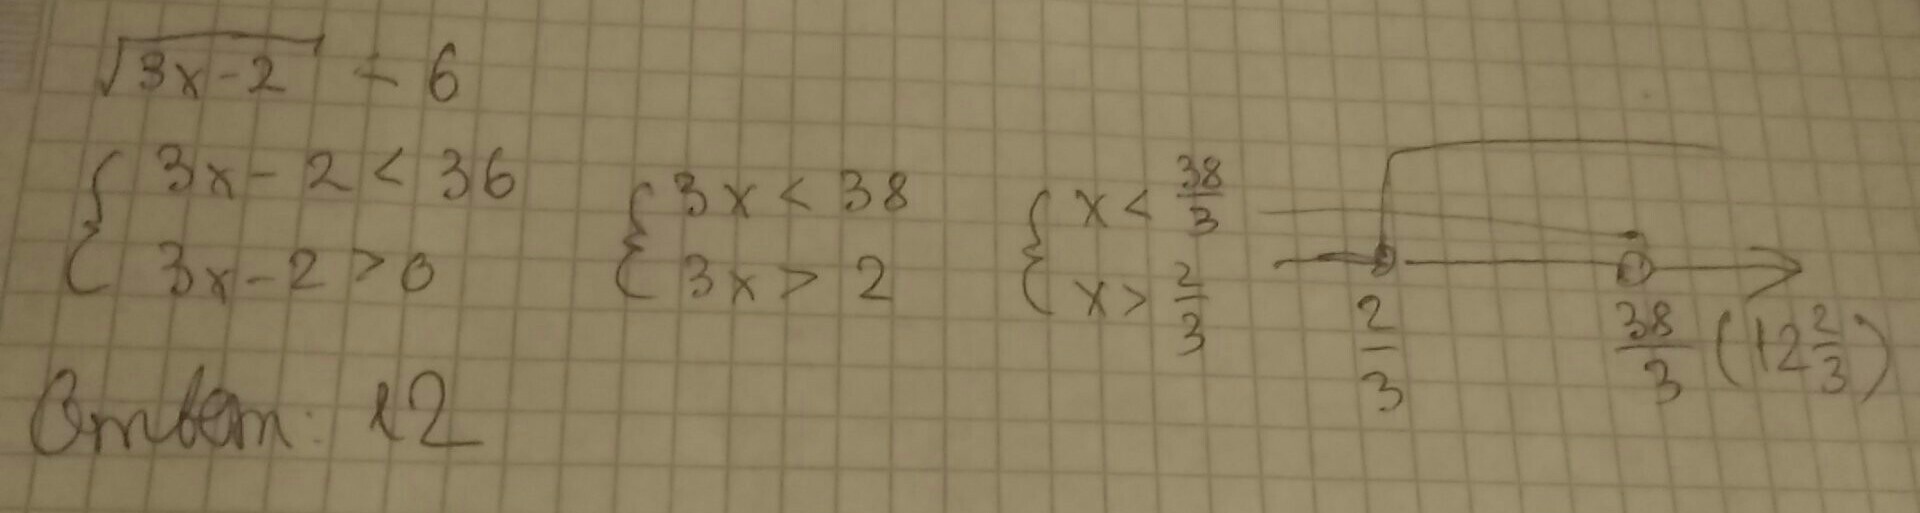 √(3x-2) < 6
{ 3x-2 < 36 { 3x < 38 { x < 38/3
{ 3x-2 > 0 { 3x > 2 { x > 2/3
2/3 38/3 (12 2/3)
Ответ: 12